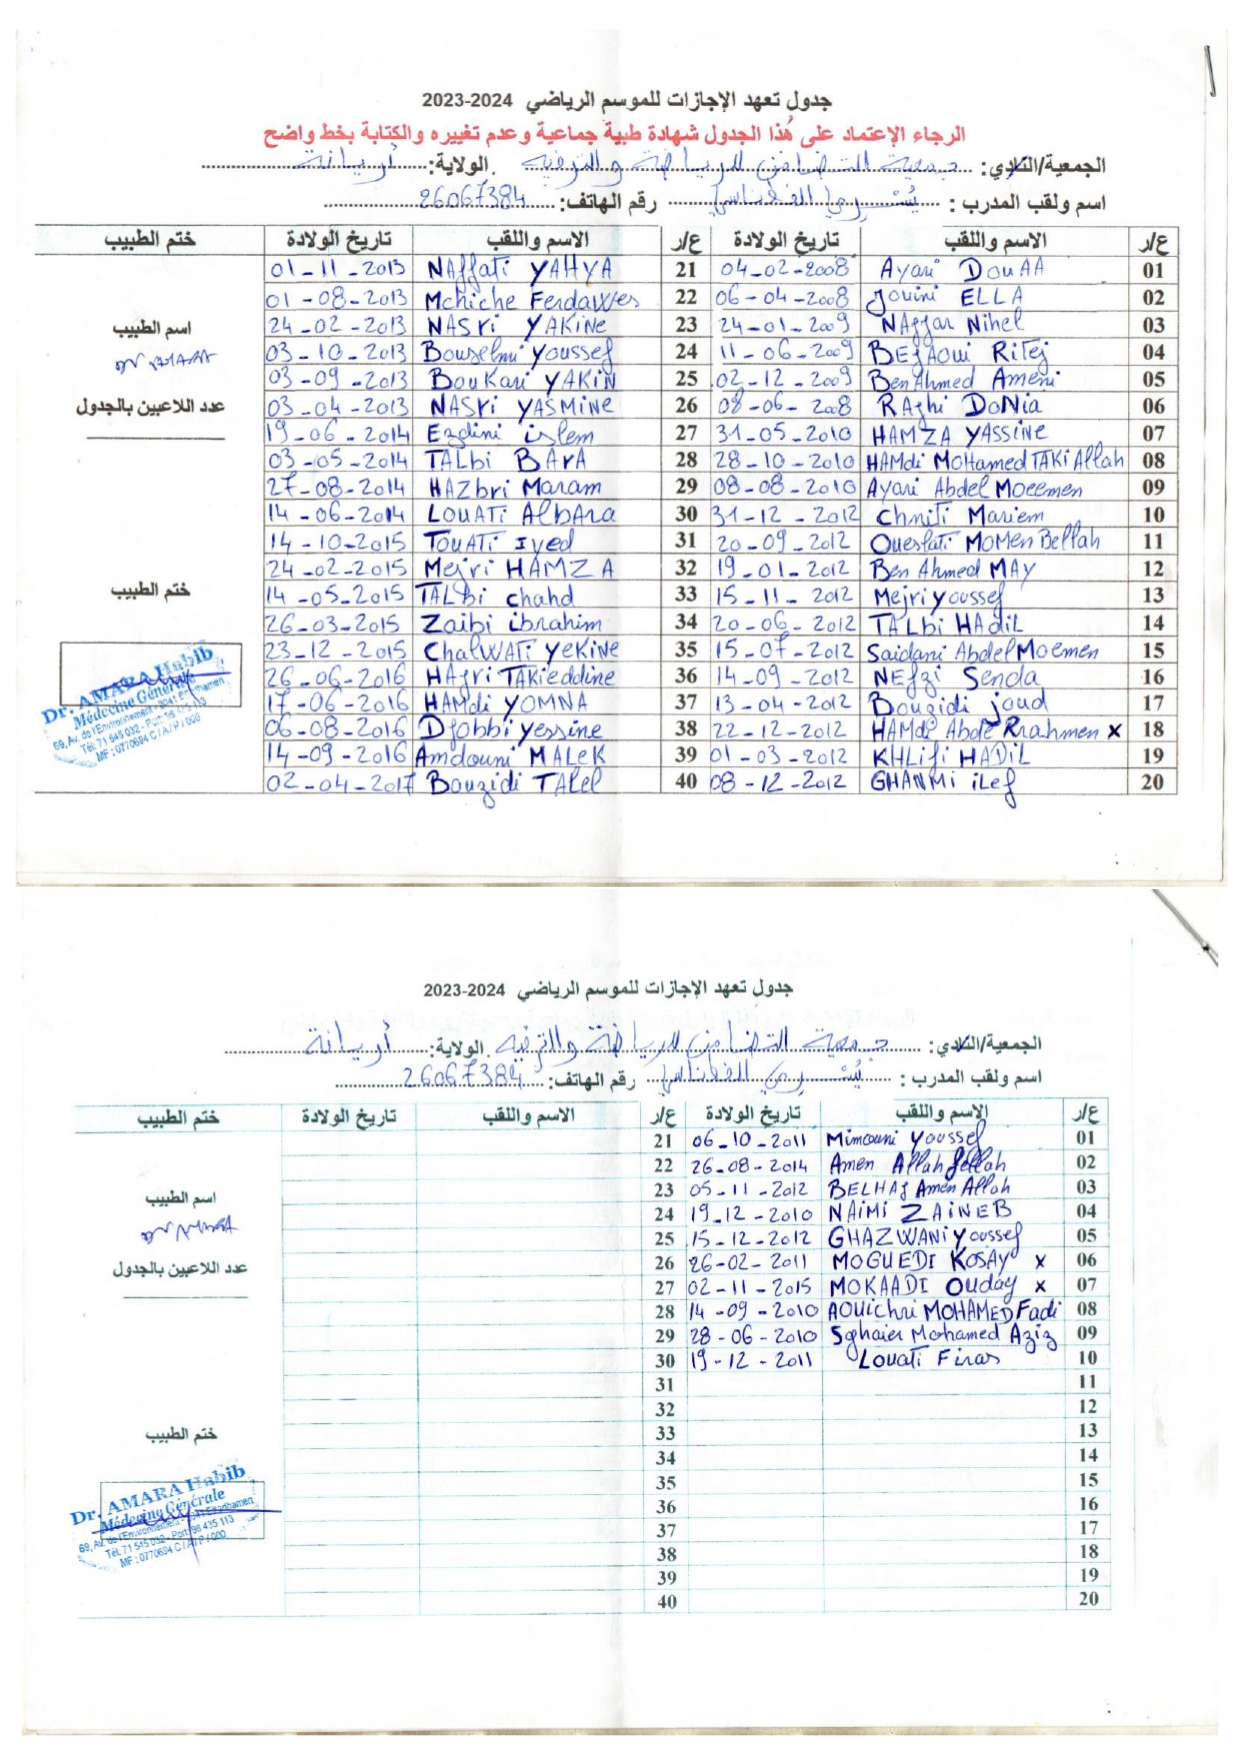 جدول تعهد الإجازات للموسم الرياضي 2023-2024
الرجاء الإعتماد على هُذا الجدول شهادة طبية جماعية وعدم تغييره والكتابة بخط واضح
الجمعية/النادي: جمعية التضامن للرياضة والترفيه الولاية: أريانة
اسم ولقب المدرب : يُسرى رقم الهاتف: 26067384
ع/ر الاسم واللقب تاريخ الولادة ع/ر الاسم واللقب تاريخ الولادة ختم الطبيب
01 Ayari DouAA 04-02-2008 21 NAffati YAHYA 01-11-2013
02 Jouini ELLA 06-04-2008 22 Mchiche Ferdawes 01-08-2013
03 NAjjar Nihel 24-01-2009 23 NASri YAKiNe 24-02-2013
اسم الطبيب
04 BEJAoui Ritej 11-06-2009 24 Bouzelmi Youssef 03-10-2013
05 Ben Ahmed Ameni 02-12-2009 25 BouKari YAKiN 03-09-2013
06 RAjhi DoNia 08-06-2008 26 NASri YASMiNe 03-04-2013
عدد اللاعبين بالجدول
07 HAMZA YASSiNe 31-05-2010 27 Ezdini islem 19-06-2014
08 HAMdi MoHamed TAKi Allah 28-10-2010 28 TALbi BArA 03-05-2014
09 Ayari Abdel Moeemen 08-08-2010 29 HAZbri Maram 27-08-2014
10 Chniti Mariem 31-12-2012 30 LOUATi AlbAra 14-06-2014
11 Oueslati MoMen Bellah 20-09-2012 31 TouATi Iyed 14-10-2015
12 Ben Ahmed MAY 19-01-2012 32 Mejri HAMZA 24-02-2015
ختم الطبيب
13 Mejri youssef 15-11-2012 33 TALbi chahd 14-05-2015
14 TALbi HAdiL 20-06-2012 34 Zaibi ibrahim 26-03-2015
15 Saidani Abdel Moemen 15-07-2012 35 ChalWATi YeKiNe 23-12-2015
16 NEfzi Senda 14-09-2012 36 HAjri TAKieddine 26-06-2016
17 Bouzidi joud 13-04-2012 37 HAMdi YOMNA 17-06-2016
18 HAMdi Abde Rrahmen x 22-12-2012 38 Djobbi yessine 06-08-2016
19 KHLifi HADiL 01-03-2012 39 Amdouni MALeK 14-09-2016
20 GHANMi iLef 08-12-2012 40 Bouzidi TAlel 02-04-2017
Dr. AMARA Habib
Médecine Générale
69, Av. de l'Environnement - 2041 Ettadhamen
Tél: 71 545 032 - Port: 98 435 113
MF : 0770694 C / A / P / 000
جدول تعهد الإجازات للموسم الرياضي 2023-2024
الجمعية/النادي: جمعية التضامن للرياضة والترفيه الولاية: أريانة
اسم ولقب المدرب : يُسرى رقم الهاتف: 26067384
ع/ر الاسم واللقب تاريخ الولادة ع/ر الاسم واللقب تاريخ الولادة ختم الطبيب
01 Mimouni Youssef 06-10-2011 21
02 Amen Allah fellah 26-08-2014 22
03 BELHAJ Amen Allah 05-11-2012 23
اسم الطبيب
04 NAiMi ZAiNEB 19-12-2010 24
05 GHAZWANi Youssef 15-12-2012 25
06 MOGUEDI KOSAY x 26-02-2011 26
عدد اللاعبين بالجدول
07 MOKAADI Ouday x 02-11-2015 27
08 AOUichri MOHAMED Fadi 14-09-2010 28
09 Sghaier Mohamed Aziz 28-06-2010 29
10 Louati Firas 19-12-2011 30
11 31
12 32
13 33
ختم الطبيب
14 34
15 35
16 36
17 37
18 38
19 39
20 40
Dr. AMARA Habib
Médecine Générale
69, Av. de l'Environnement - 2041 Ettadhamen
Tél: 71 545 032 - Port: 98 435 113
MF : 0770694 C / A / P / 000